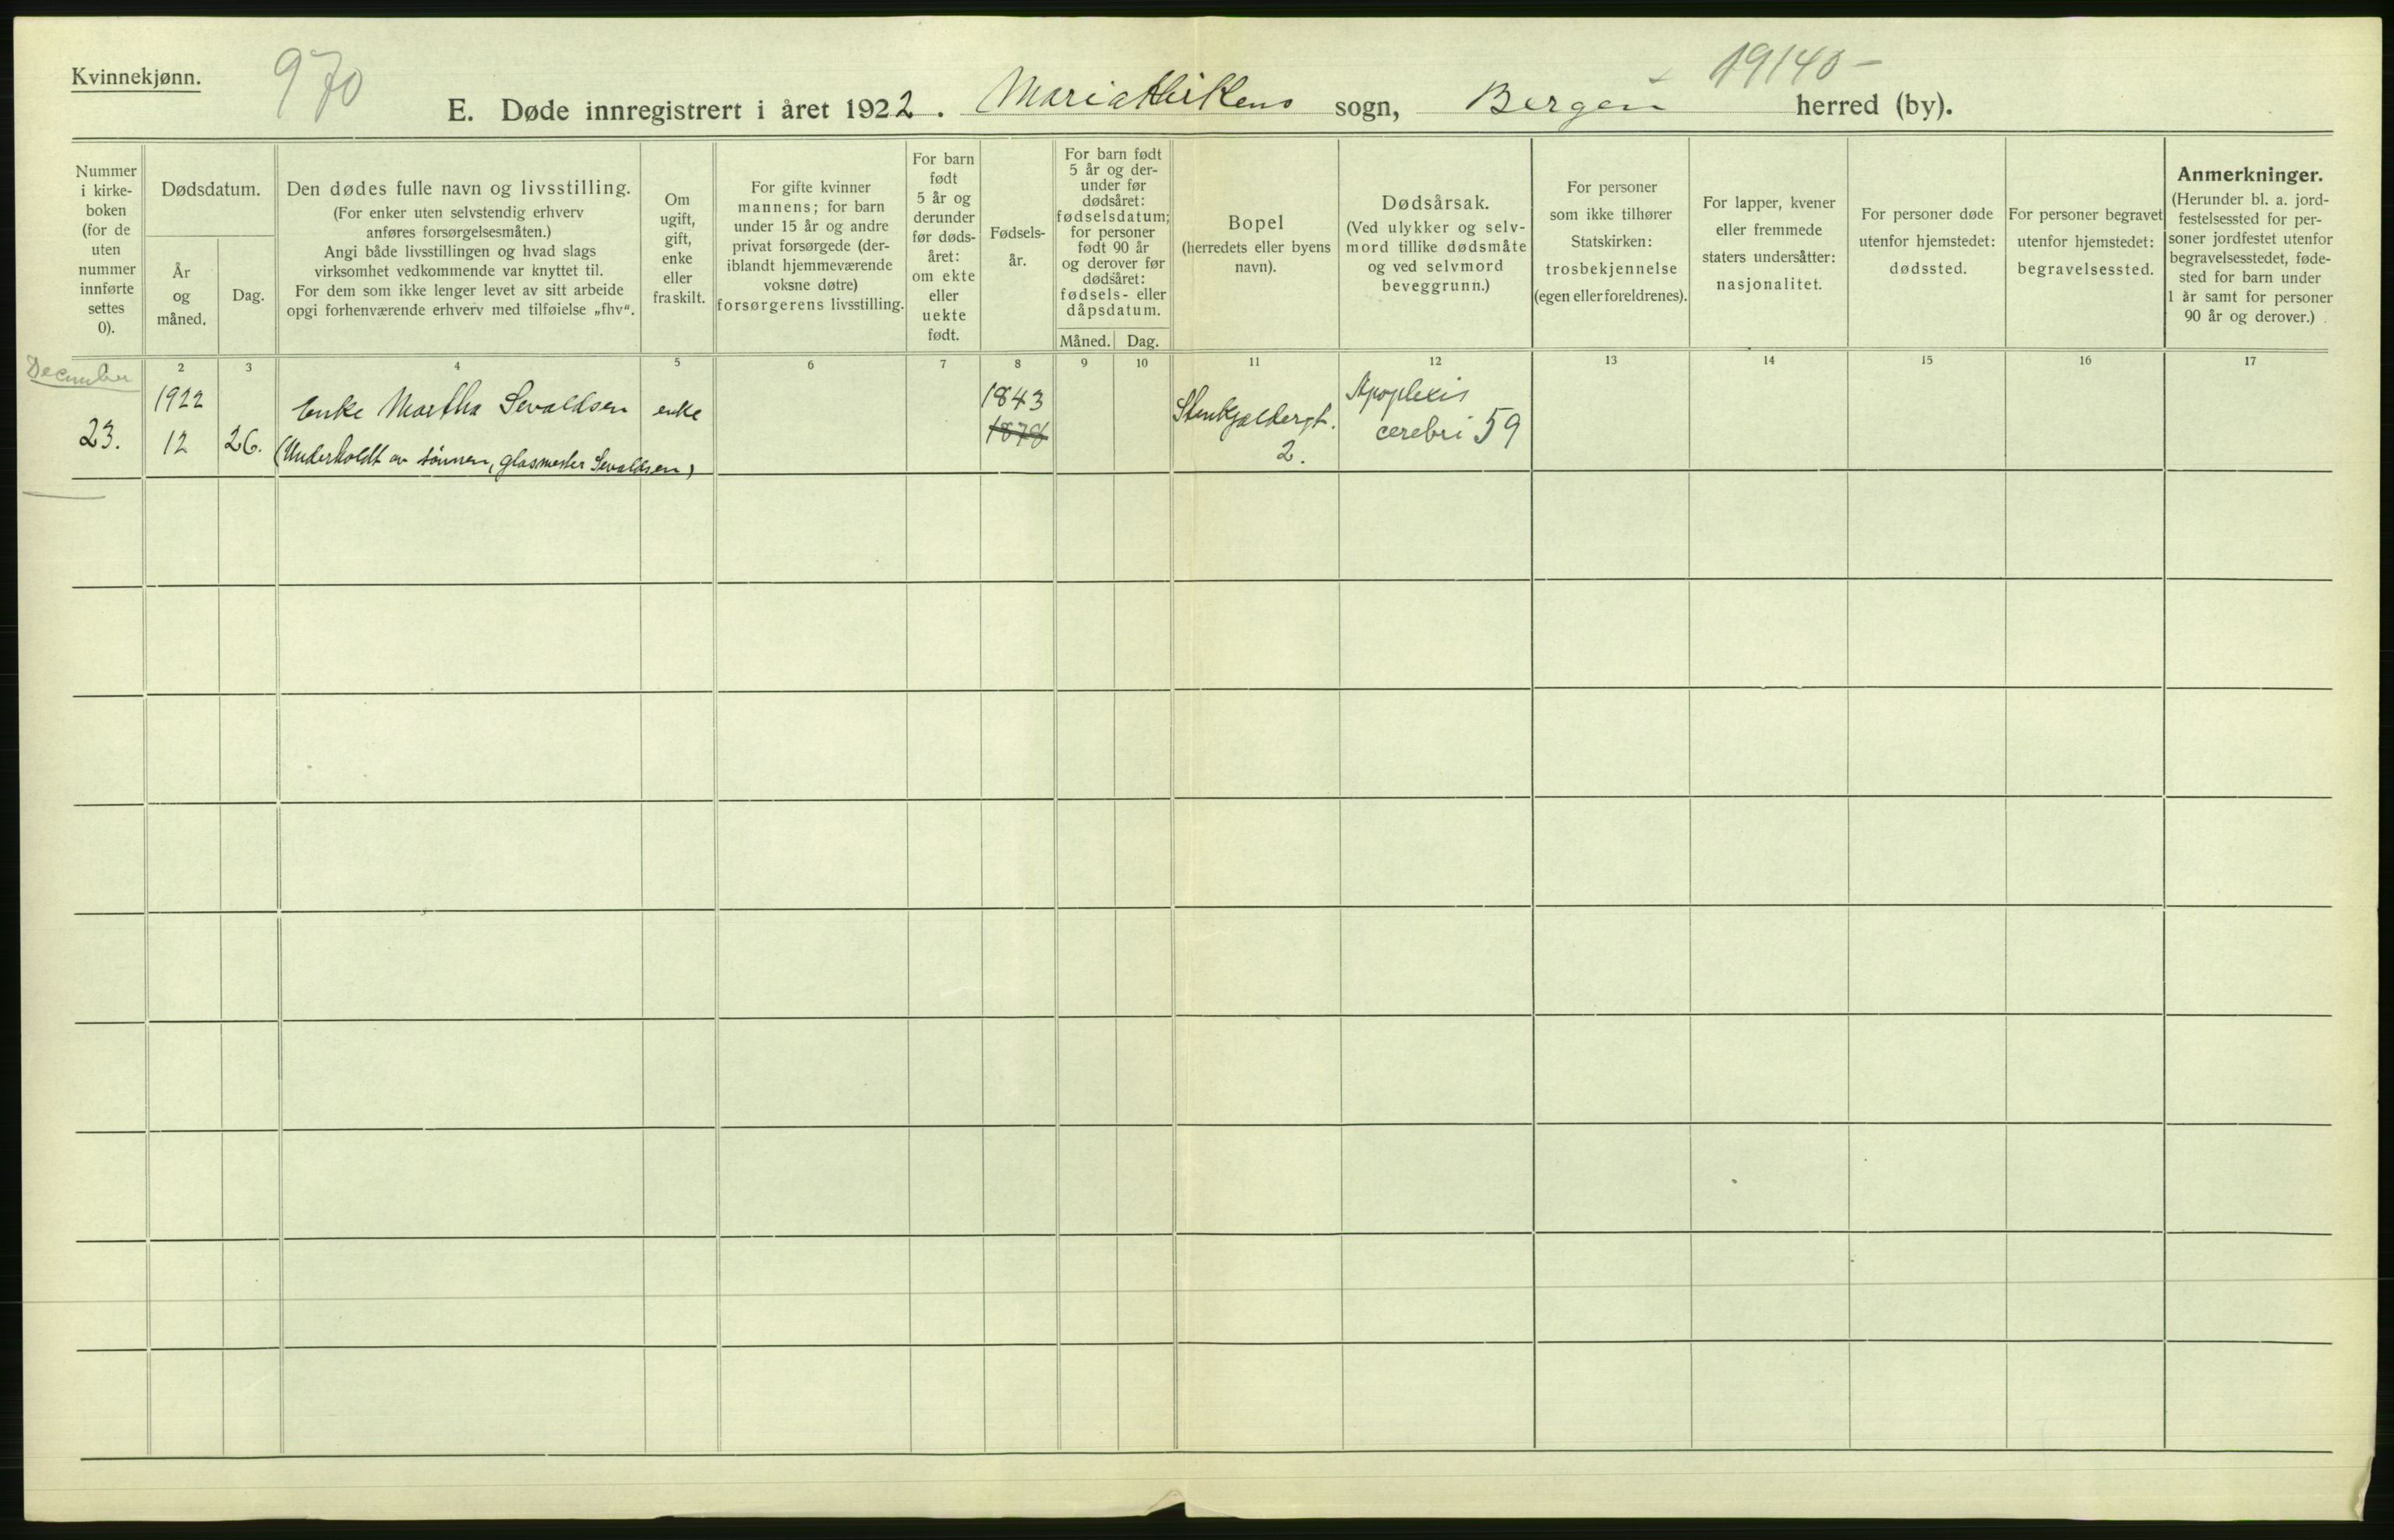 Kvinnekjønn.
970
19140-
E. Døde innregistrert i året 1922. Mariakirkens sogn, Bergen herred (by).
Nummer
i kirke-
boken
(for de
uten
nummer
innførte
settes
0).
Dødsdatum.
År
og
måned.
Dag.
Den dødes fulle navn og livsstilling.
(For enker uten selvstendig erhverv
anføres forsørgelsesmåten.)
Angi både livsstillingen og hvad slags
virksomhet vedkommende var knyttet til.
For dem som ikke lenger levet av sitt arbeide
opgi forhenværende erhverv med tilføielse „fhv“.
Om
ugift,
gift,
enke
eller
fraskilt.
For gifte kvinner
mannens; for barn
under 15 år og andre
privat forsørgede (der-
iblandt hjemmeværende
voksne døtre)
forsørgerens livsstilling.
For barn
født
5 år og
derunder
før døds-
året:
om ekte
eller
uekte
født.
Fødsels-
år.
For barn født
5 år og der-
under før
dødsåret:
fødselsdatum;
for personer
født 90 år
og derover før
dødsåret:
fødsels- eller
dåpsdatum.
Måned. Dag.
Bopel
(herredets eller byens
navn).
Dødsårsak.
(Ved ulykker og selv-
mord tillike dødsmåte
og ved selvmord
beveggrunn.)
For personer
som ikke tilhører
Statskirken:
trosbekjennelse
(egen eller foreldrenes).
For lapper, kvener
eller fremmede
staters undersåtter:
nasjonalitet.
For personer døde
utenfor hjemstedet:
dødssted.
For personer begravet
utenfor hjemstedet:
begravelsessted.
Anmerkninger.
(Herunder bl. a. jord-
festelsessted for per-
soner jordfestet utenfor
begravelsesstedet, føde-
sted for barn under
1 år samt for personer
90 år og derover.)
2 3 4 5 6 7 8 9 10 11 12 13 14 15 16 17
December
23.
1922
12
26.
Enke Martha Sevaldsen
(Underholdt av sønnen, glasmester Sevaldsen)
enke
1843
1878
Stenkjeldergt.
2.
Apoplexis
cerebri 59